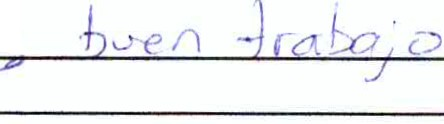 buen trabajo